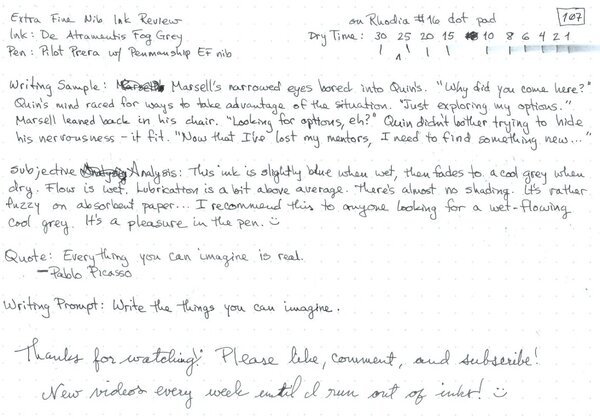 Extra Fine Nib Ink Review
on Rhodia #16 dot pad
107
Ink: De Atramentis Fog Grey
Dry Time: 30 25 20 15 10 8 6 4 2 1
Pen: Pilot Prera w/ Penmanship EF nib
Writing Sample: Marsell's narrowed eyes bored into Quin's. "Why did you come here?"
Quin's mind raced for ways to take advantage of the situation. "Just exploring my options."
Marsell leaned back in his chair. "Looking for options, eh?" Quin didn't bother trying to hide
his nervousness - it fit. "Now that I've lost my mentors, I need to find something new..."
Subjective Analysis: This ink is slightly blue when wet, then fades to a cool grey when
dry. Flow is wet. Lubrication is a bit above average. There's almost no shading. It's rather
fuzzy on absorbent paper... I recommend this to anyone looking for a wet-flowing
cool grey. It's a pleasure in the pen. :)
Quote: Everything you can imagine is real.
- Pablo Picasso
Writing Prompt: Write the things you can imagine.
Thanks for watching! Please like, comment, and subscribe!
New videos every week until I run out of inks! :)